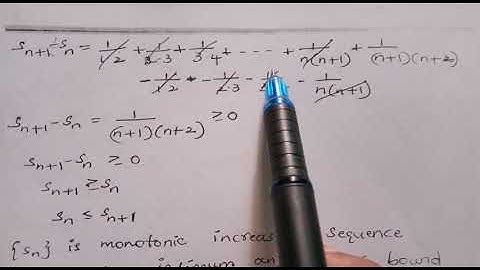 Sn+1 - Sn = 1/1·2 + 1/2·3 + 1/3·4 + ---- + 1/n(n+1) + 1/(n+1)(n+2)
- 1/1·2 - 1/2·3 - - 1/n(n+1)
Sn+1 - Sn = 1/(n+1)(n+2) ≥ 0
Sn+1 - Sn ≥ 0
Sn+1 ≥ Sn
Sn ≤ Sn+1
{Sn} is monotonic sequence
bound